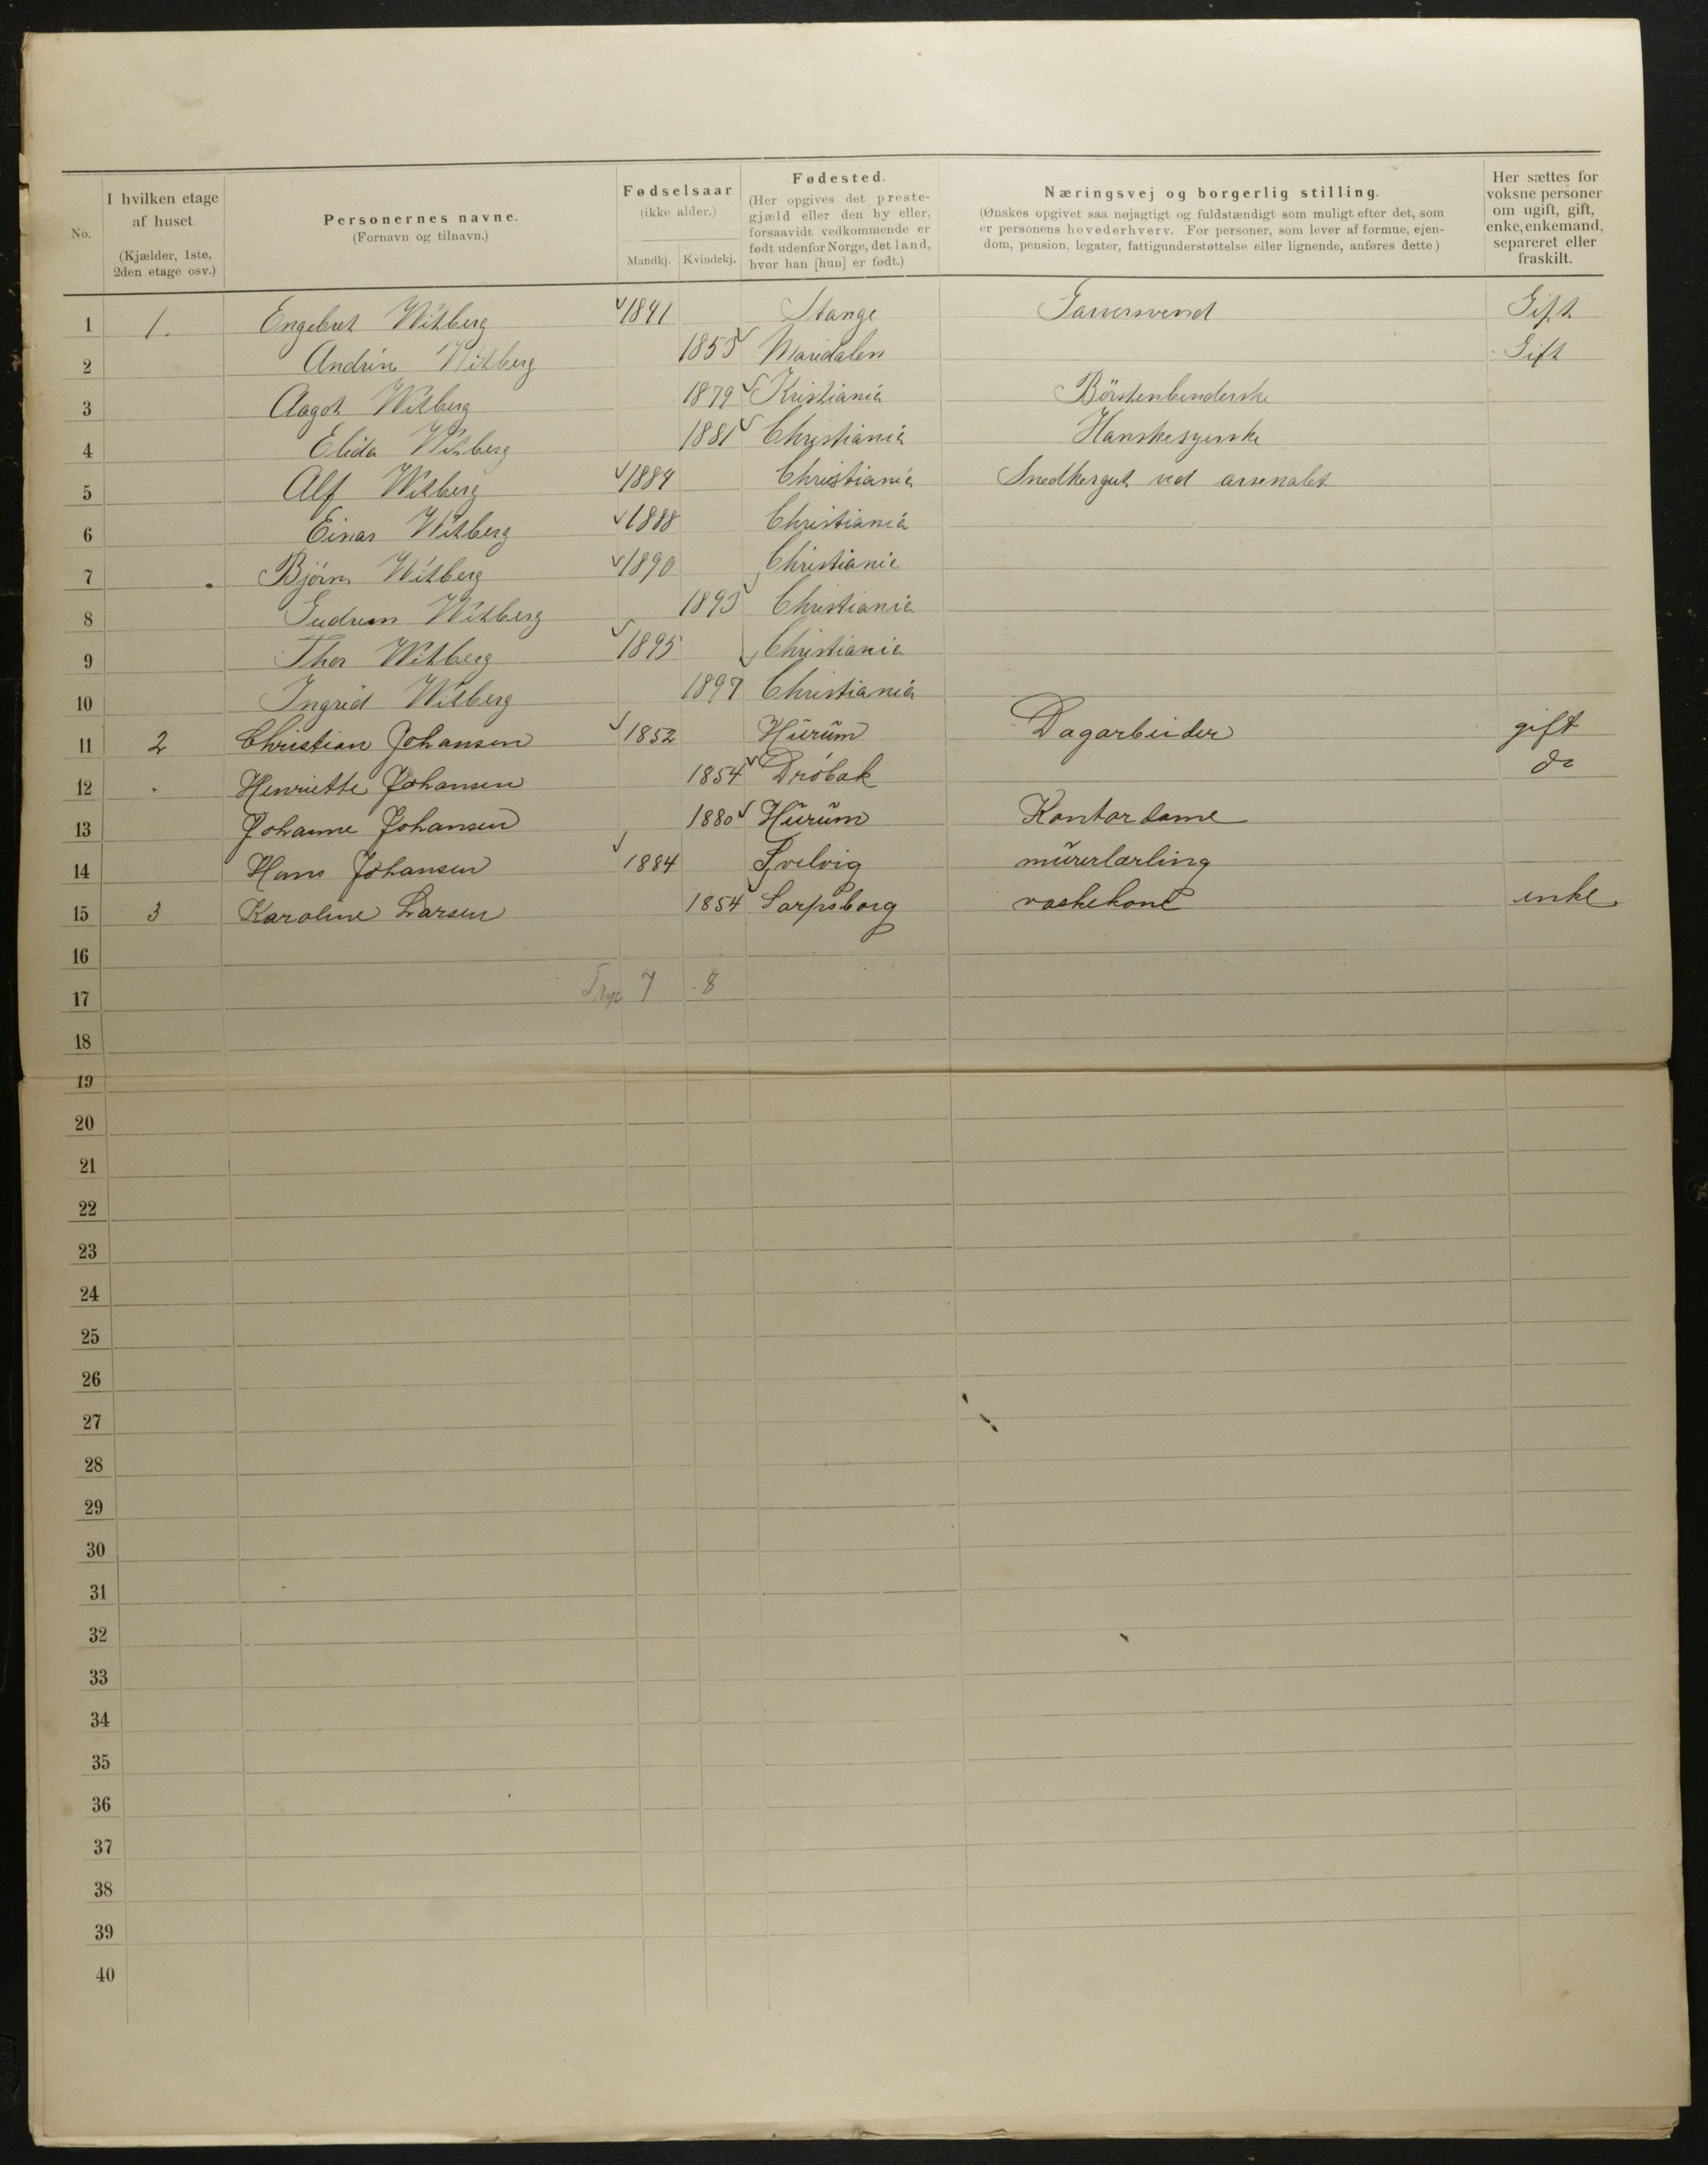 No.
I hvilken etage af huset. (Kjælder, 1ste, 2den etage osv.)
Personernes navne. (Fornavn og tilnavn.)
Fødselsaar (ikke alder.)
Mandkj. Kvindekj.
Fødested. (Her opgives det prestegjæld eller den by eller, forsaavidt vedkommende er født udenfor Norge, det land, hvor han [hun] er født.)
Næringsvej og borgerlig stilling. (Ønskes opgivet saa nøjagtigt og fuldstændigt som muligt efter det, som er personens hovederhverv. For personer, som lever af formue, ejendom, pension, legater, fattigunderstøttelse eller lignende, anføres dette)
Her sættes for voksne personer om ugift, gift, enke, enkemand, separeret eller fraskilt.
1 1. Engebret Witberg 1841 Stange Farversvend Gift
2 Andrine Witberg 1855 Maridalen Gift
3 Aagot Witberg 1879 Kristiania Börstenbinderske
4 Elida Witberg 1881 Christiania Hanskesyerske
5 Alf Witberg 1884 Christiania Snedkergut ved arsenalet
6 Einar Witberg 1888 Christiania
7 Björn Witberg 1890 Christiania
8 Gudrun Witberg 1893 Christiania
9 Thor Witberg 1895 Christiania
10 Ingrid Witberg 1897 Christiania
11 2 Christian Johansen 1852 Hurum Dagarbeider gift
12 Henriette Johansen 1854 Dröbak do
13 Johanne Johansen 1880 Hurum Kontordame
14 Hans Johansen 1884 Svelvig murerlærling
15 3 Karoline Larsen 1854 Sarpsborg vaskekone enke
16
17 7 8
18
19
20
21
22
23
24
25
26
27
28
29
30
31
32
33
34
35
36
37
38
39
40